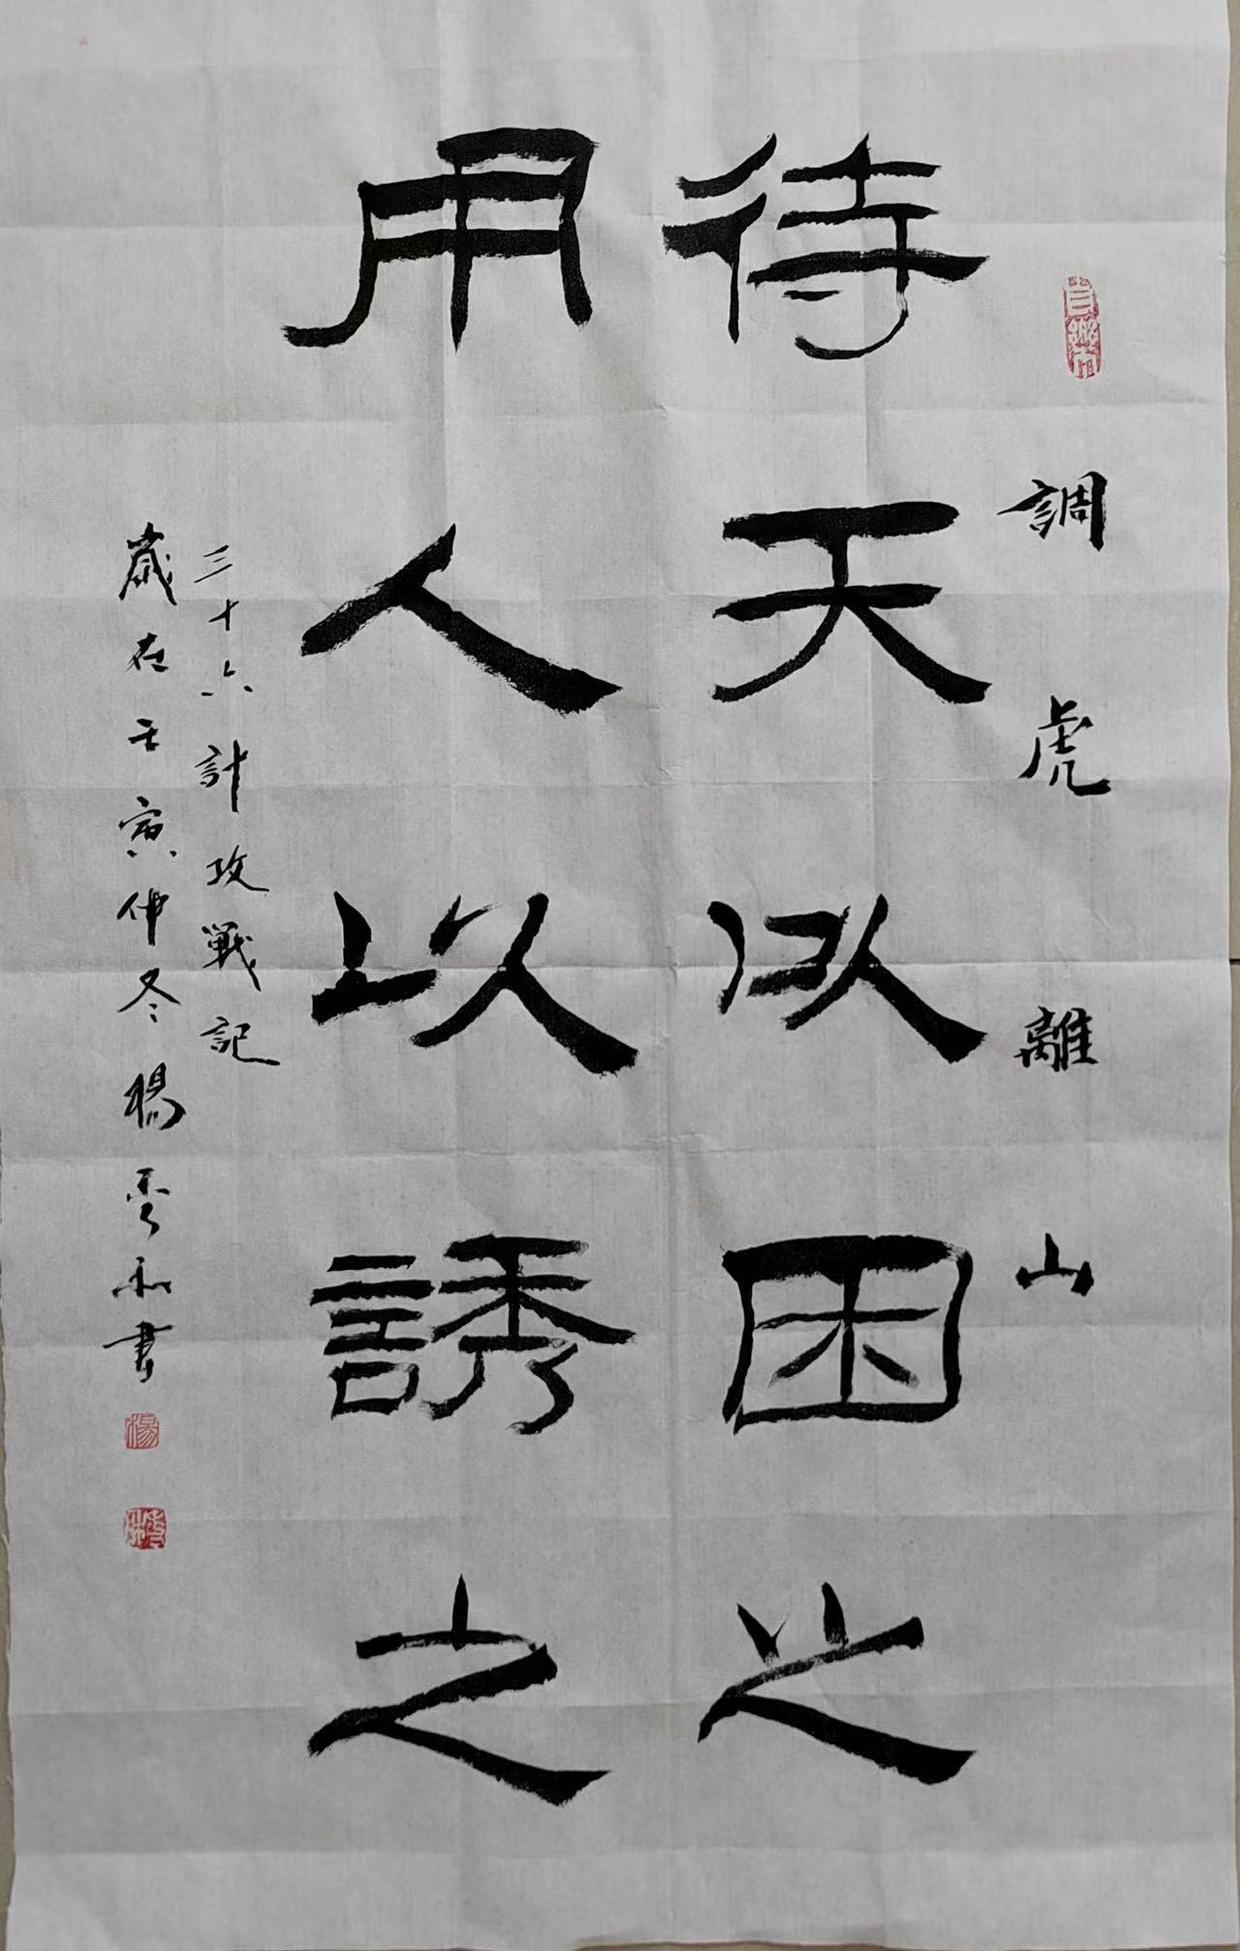 調虎離山
待天以困之
用人以誘之
三十六計攻戰記
歲在壬寅仲冬楊秀和書